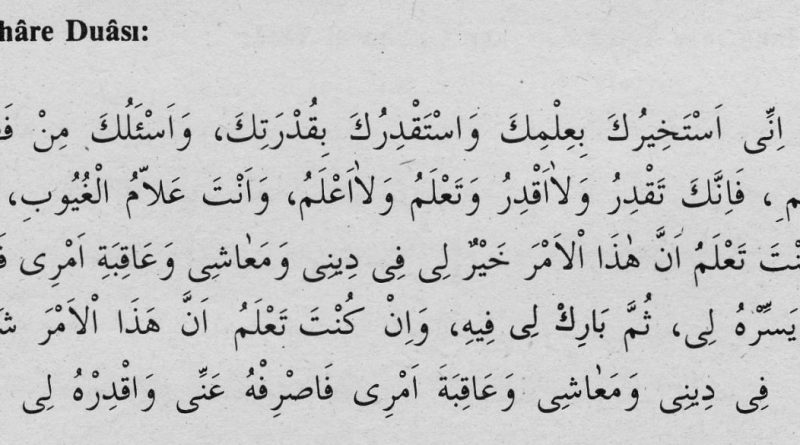 hâre Duâsı:
اِنِّى اَسْتَخِيرُكَ بِعِلْمِكَ وَاسْتَقْدِرُكَ بِقُدْرَتِكَ، وَاَسْئَلُكَ مِنْ
فَاِنَّكَ تَقْدِرُ وَلاٰاَقْدِرُ وَتَعْلَمُ وَلاٰاَعْلَمُ، وَاَنْتَ عَلاّٰمُ الْغُيُوبِ،
تَعْلَمُ اَنَّ هٰذَا اْلاَمْرَ خَيْرٌ لِى فِى دِينِى وَمَعٰاشِى وَعَاقِبَةِ اَمْرِى
يَسِّرْهُ لِى، ثُمَّ بَارِكْ لِى فِيهِ، وَاِنْ كُنْتَ تَعْلَمُ اَنَّ هَذَا اْلاَمْرَ
فِى دِينِى وَمَعٰاشِى وَعَاقِبَةَ اَمْرِى فَاصْرِفْهُ عَنِّى وَاقْدِرْهُ لِى